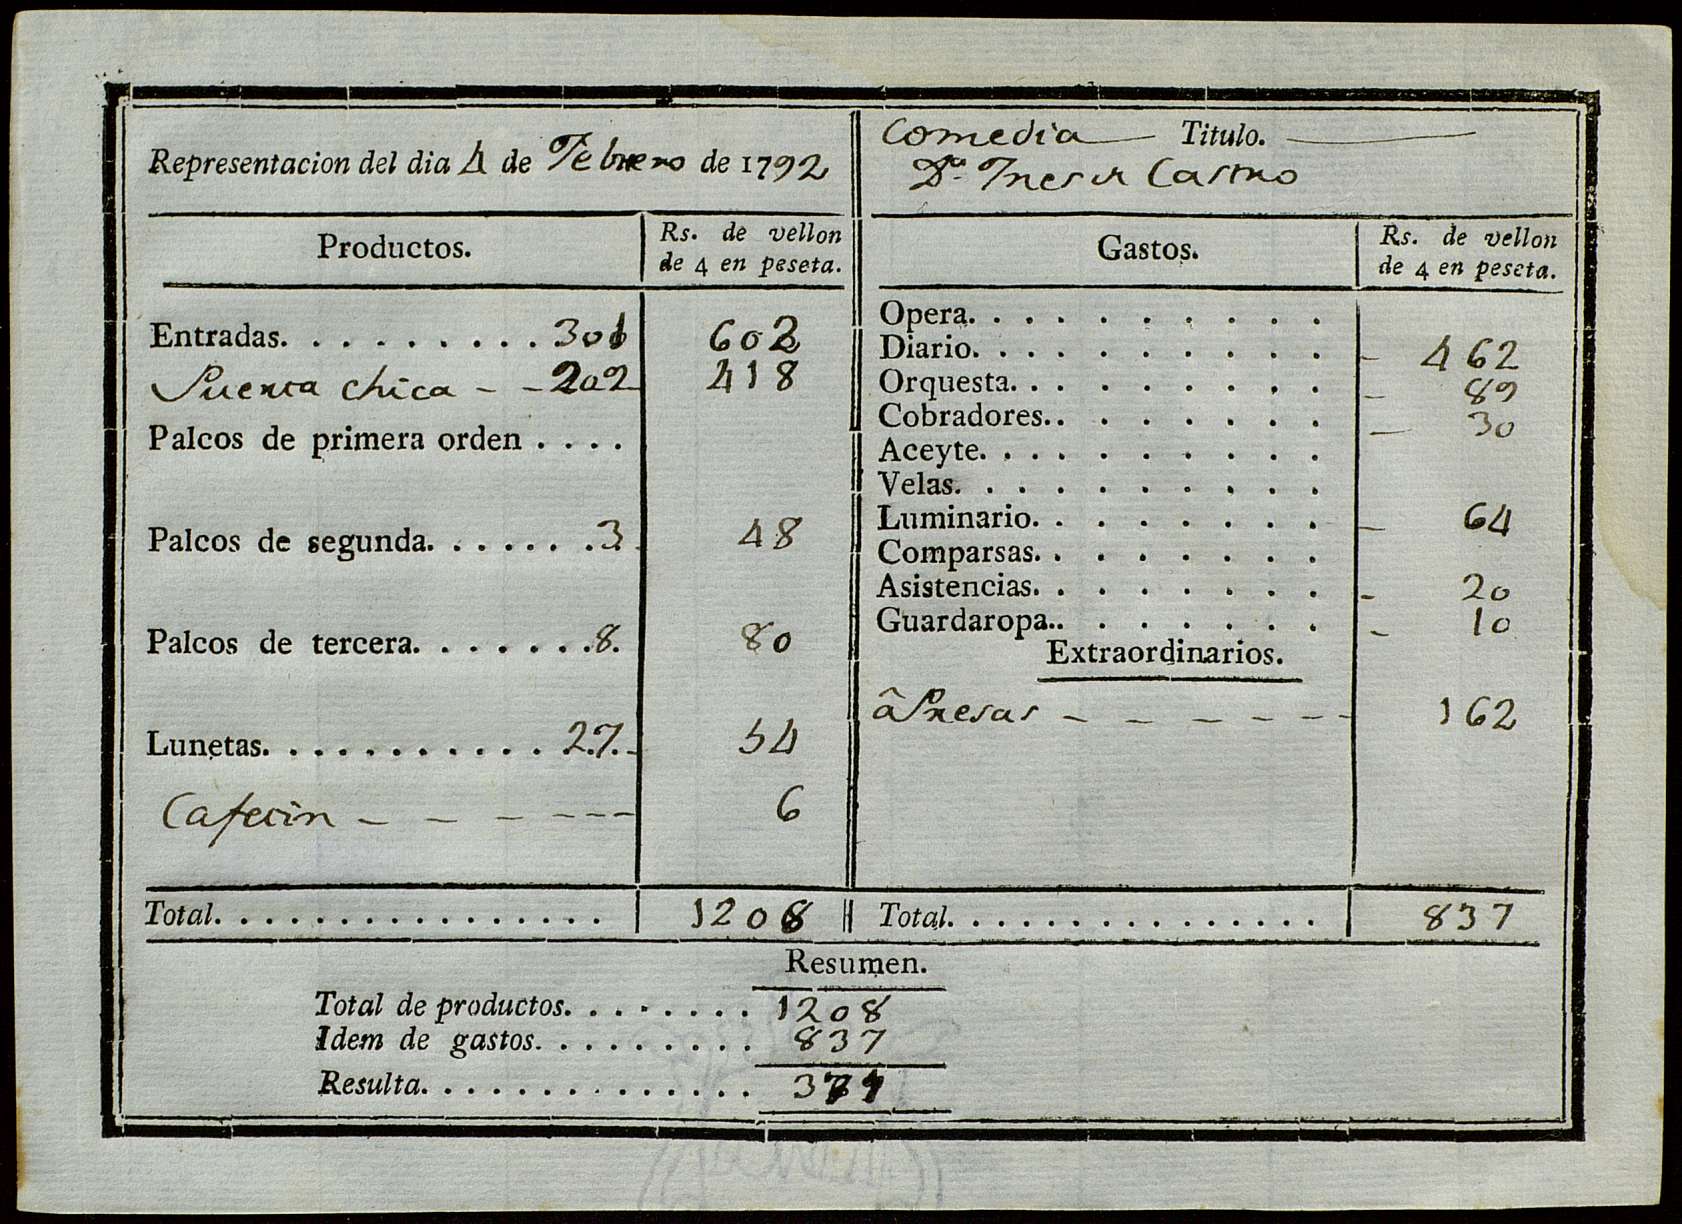 Representacion del dia 4 de Febrero de 1792
Comedia Titulo.
Dª. Ines de Castro
Productos.
Rs. de vellon
de 4 en peseta.
Entradas. . . . . . . . . . 301 602
Puerta chica - - 202 418
Palcos de primera orden . . . .
Palcos de segunda. . . . . . . 3. 48
Palcos de tercera. . . . . . . 8. 80
Lunetas. . . . . . . . . . . 27. 54
6
Total. . . . . . . . . . . . . . . . 1208
Gastos.
Rs. de vellon
de 4 en peseta.
Opera. . . . . . . . . .
Diario. . . . . . . . . . - 462
Orquesta. . . . . . . . . - 89
Cobradores.. . . . . . . - 30
Aceyte. . . . . . . . . .
Velas. . . . . . . . . . .
Luminario. . . . . . . . - 64
Comparsas. . . . . . . .
Asistencias. . . . . . . . - 20
Guardaropa.. . . . . . . - 10
Extraordinarios.
â Presas - - - - - - - 162
Total. . . . . . . . . . . . . . . 837
Resumen.
Total de productos. . . . . . . . 1208
Idem de gastos. . . . . . . . . 837
Resulta. . . . . . . . . . . . . 371